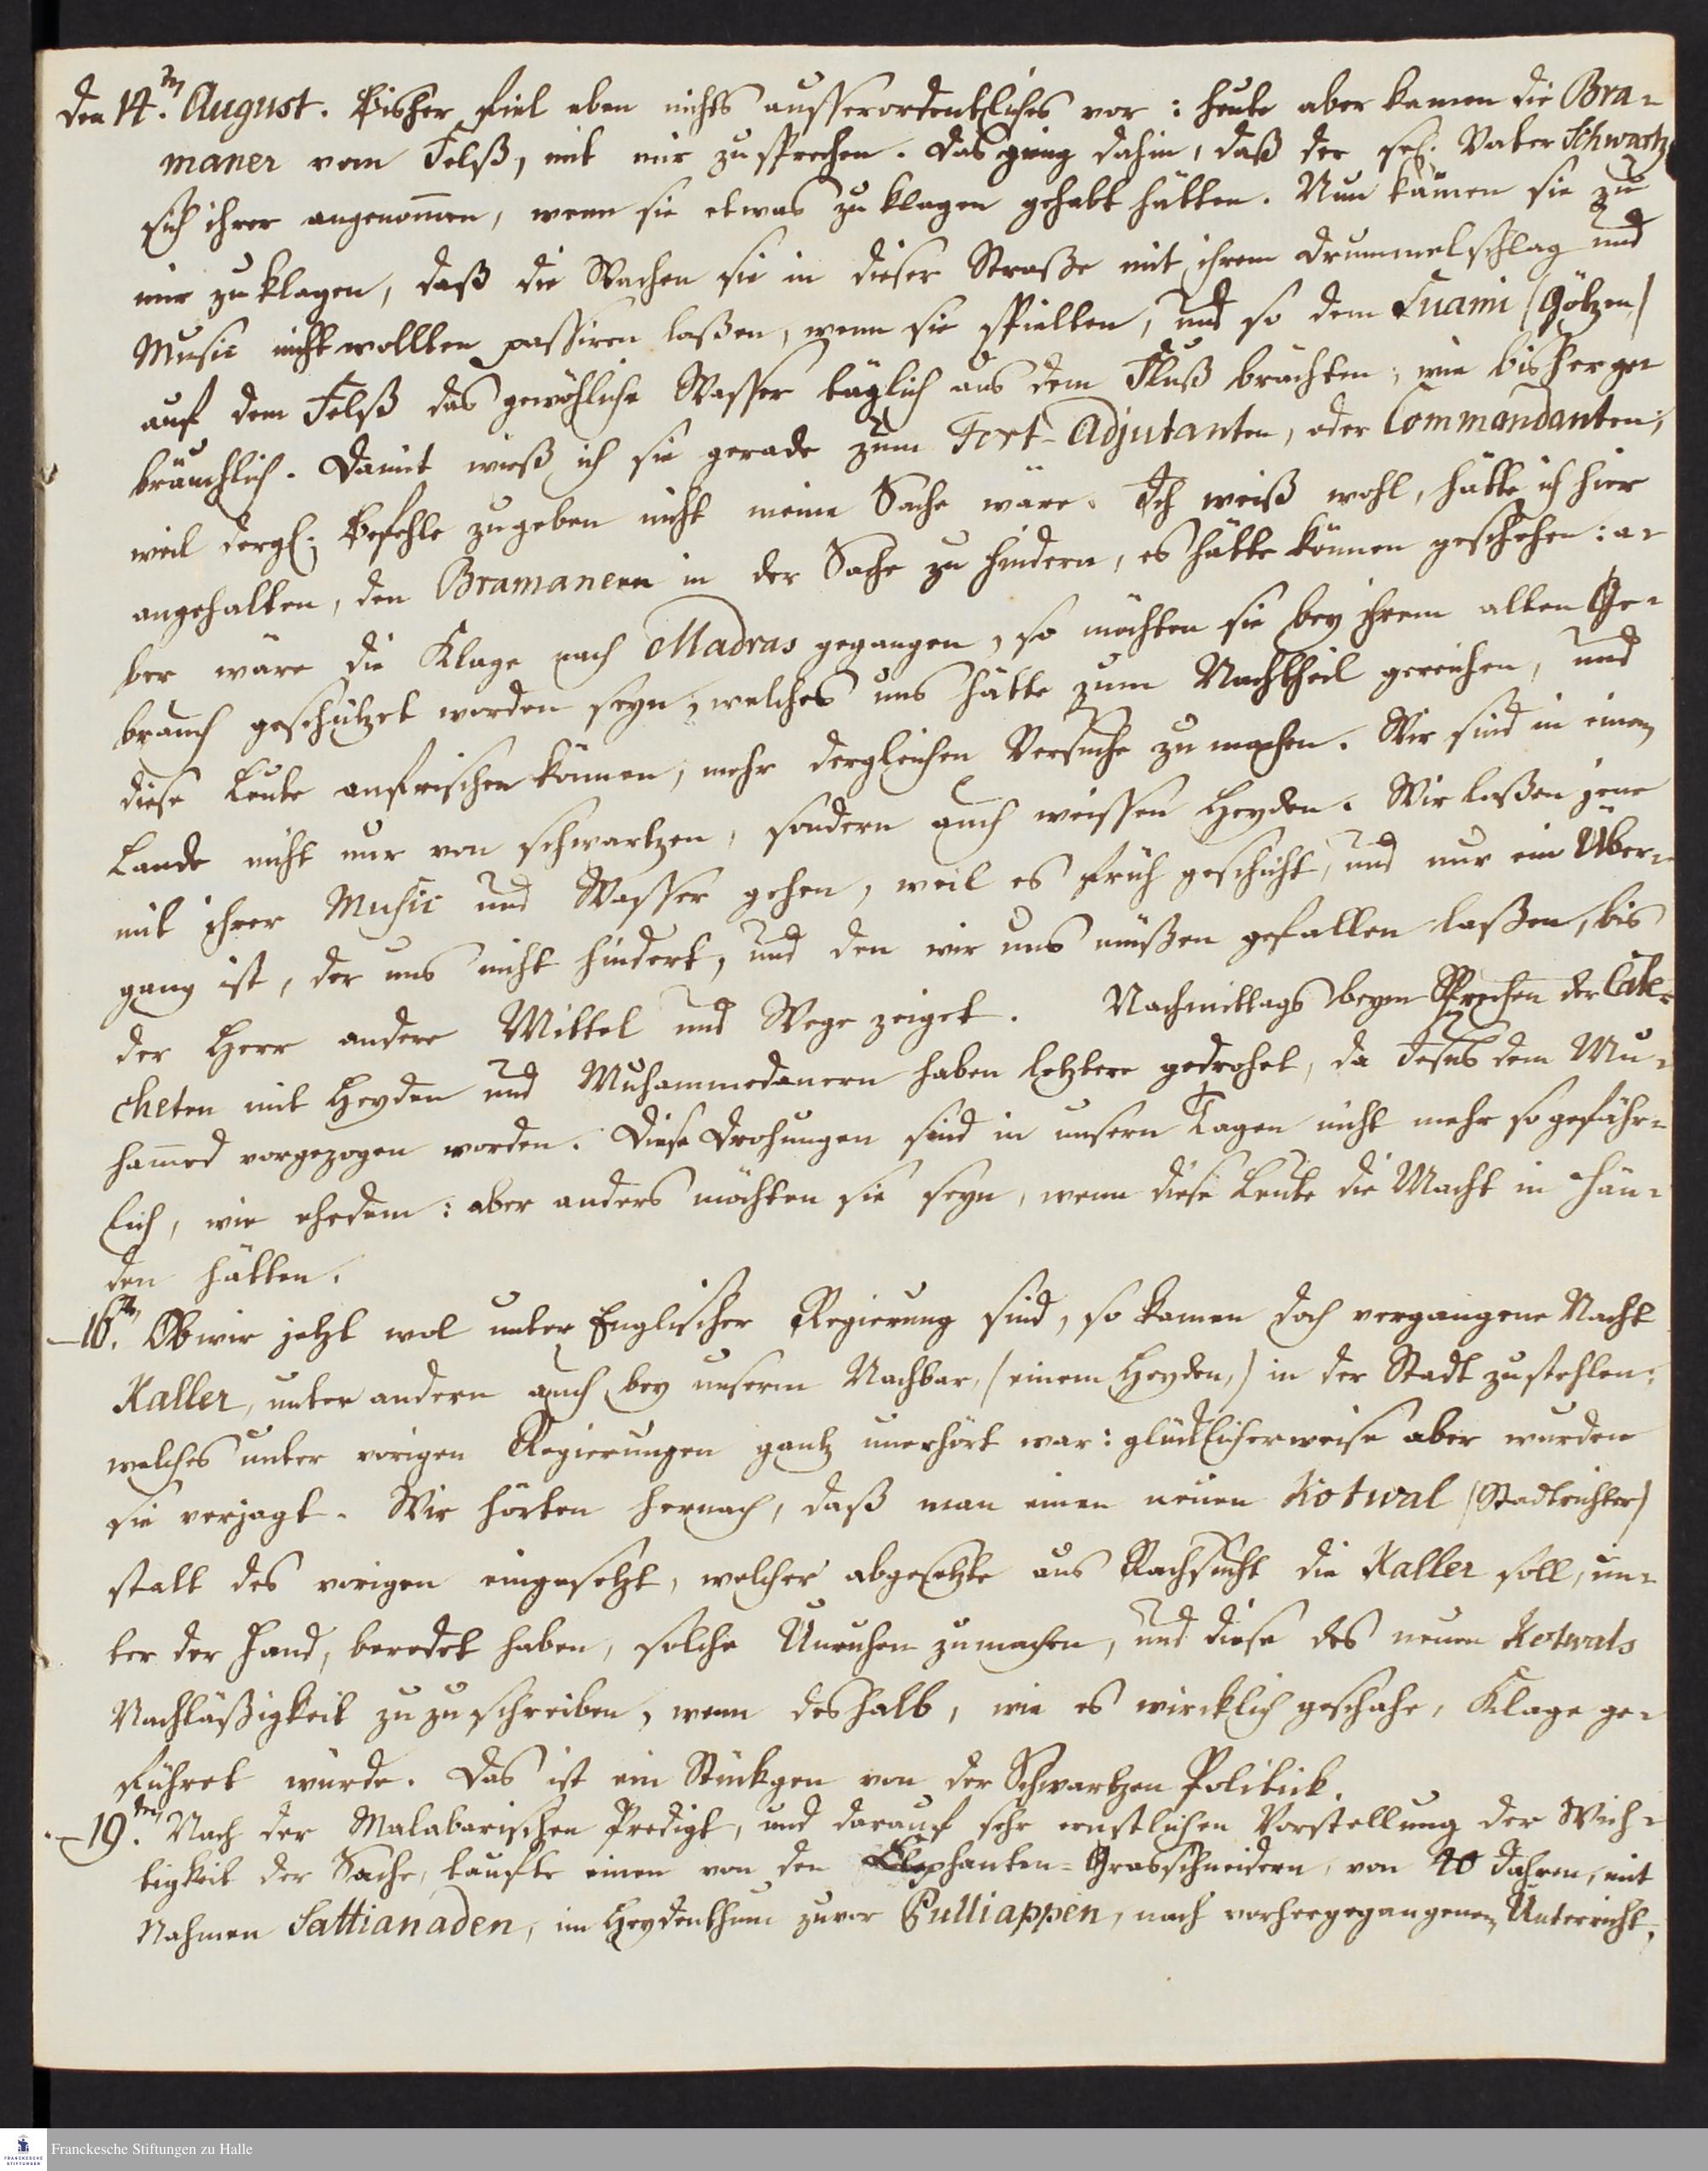 den 14.ten August. Bisher fiel eben nichts ausserordentliches vor: heute aber kamen die Bra-
maner vom Felß, mit mir zu sprechen. Das ging dahin, daß der sel. Vater Schwartz
sich ihrer angenom̄en, wenn sie etwas zu klagen gehabt hätten. Nun kämen sie zu
mir zu klagen, daß die Wachen sie in dieser Straße mit ihrem Drummelschlag und
Music nicht wollten passiren laßen, wenn sie spielten, und so dem Suami (Götzen)
auf dem Felß das gewöhliche Wasser täglich aus dem Fluß brächten, wie bisher ge-
bräuchlich. Damit wieß ich sie gerade zum Fort-Adjutanten, oder Commandanten;
weil dergl. Befehle zu geben nicht meine Sache wäre. Ich weiß wohl, hätte ich hier
angehalten, den Bramanern in der Sache zu hindern, es hätte können geschehen: a-
ber wäre die Klage nach Madras gegangen, so möchten sie bey ihrem alten Ge-
brauch geschützet worden seyn, welches uns hätte zum Nachtheil gereichen, und
diese Leute anfrischen können, mehr dergleichen Versuche zu machen. Wir sind in einem
Lande nicht nur von schwartzen, sondern auch weissen Heyden. Wir laßen jene
mit ihrer Music und Wasser gehen, weil es früh geschicht, und nur ein Über-
gang ist, der uns nicht hindert, und den wir uns müßen gefallen laßen, bis
der Herr andere Mittel und Wege zeiget. Nachmittags beym Sprechen der Cate-
cheten mit Heyden und Muhammedanern haben letztere gedrohet, da Jesus dem Mu-
ham̄ed vorgezogen worden. Diese Drohungen sind in unsern Tagen nicht mehr so gefähr-
lich, wie ehedem: aber anders möchten sie seyn, wenn diese Leute die Macht in Hän-
den hätten.
—16.ten Ob wir jetzt wol unter Englischer Regierung sind, so kamen doch vergangene Nacht
Kaller, unter andern auch bey unserm Nachbar, (einem Heyden,) in der Stadt zu stehlen:
welches unter vorigen Regierungen gantz unerhört war: glücklicherweise aber wurden
sie verjagt. Wir hörten hernach, daß man einen neuen Kotwal (Stadtrichter)
statt des vorigen eingesetzt, welcher abgesetzte aus Rachsucht die Kaller soll, un-
ter der Hand, beredet haben, solche Unruhen zu machen, und diese des neuen Kotwals
Nachläßigkeit zuzuschreiben, wenn deshalb, wie es wircklich geschahe, Klage ge-
führet würde. Das ist ein Stückgen von der Schwartzen Politick.
—19.ten Nach der Malabarischen Predigt, und darauf sehr ernstlichen Vorstellung der Wich-
tigkeit der Sache, taufte einen von den Elephanten-Grasschneidern, von 40 Jahren, mit
Nahmen Sattianaden, im Heydenthum zuvor Pulliappen, nach vorhergegangenem Unterricht,
Franckesche Stiftungen zu Halle